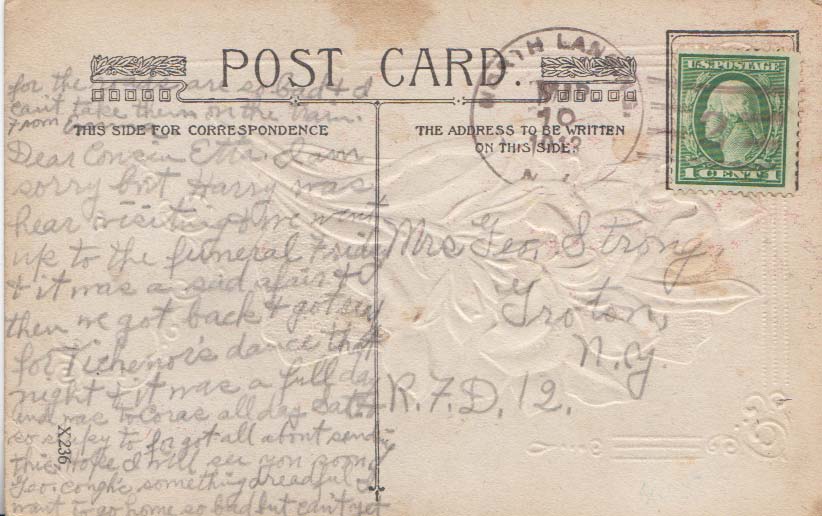 POST CARD.
THIS SIDE FOR CORRESPONDENCE
for the are so bad & I
can't take them on the train.
From
Dear Cousin Etta. I am
sorry but Harry was
hear visiting & we went
up to the funeral Friday
& it was a sad afair &
then we got back & got
for Tichenor's dance that
night & it was a full day
and was to Coras all day
so sleepy to forgot all about sending
this. Hope I will see you soon
Geo. cough's something dreadful I
want to go home so bad but can't yet
X236.
THE ADDRESS TO BE WRITTEN
ON THIS SIDE.
NORTH LANS
10
N.Y.
U.S. POSTAGE
1 CENT 1
Mrs Geo. Strong,
Groton,
N.Y.
R.F.D. 12.